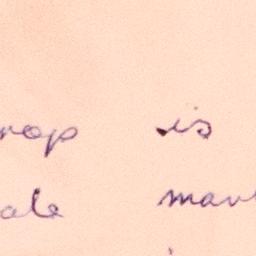 rop is
ale mar